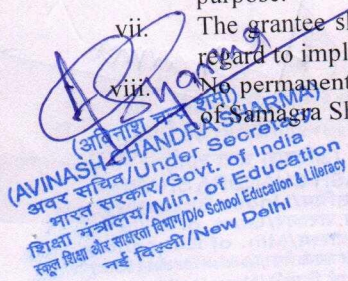 purpose.
vii. The grantee s
regard to impl
viii. No permanent
of Samagra S
(अविनाश चन्द्र शर्मा)
(AVINASH CHANDRA SHARMA)
अवर सचिव/Under Secretary
भारत सरकार/Govt. of India
शिक्षा मंत्रालय/Min. of Education
स्कूल शिक्षा और साक्षरता विभाग/D/o School Education & Literacy
नई दिल्ली/New Delhi